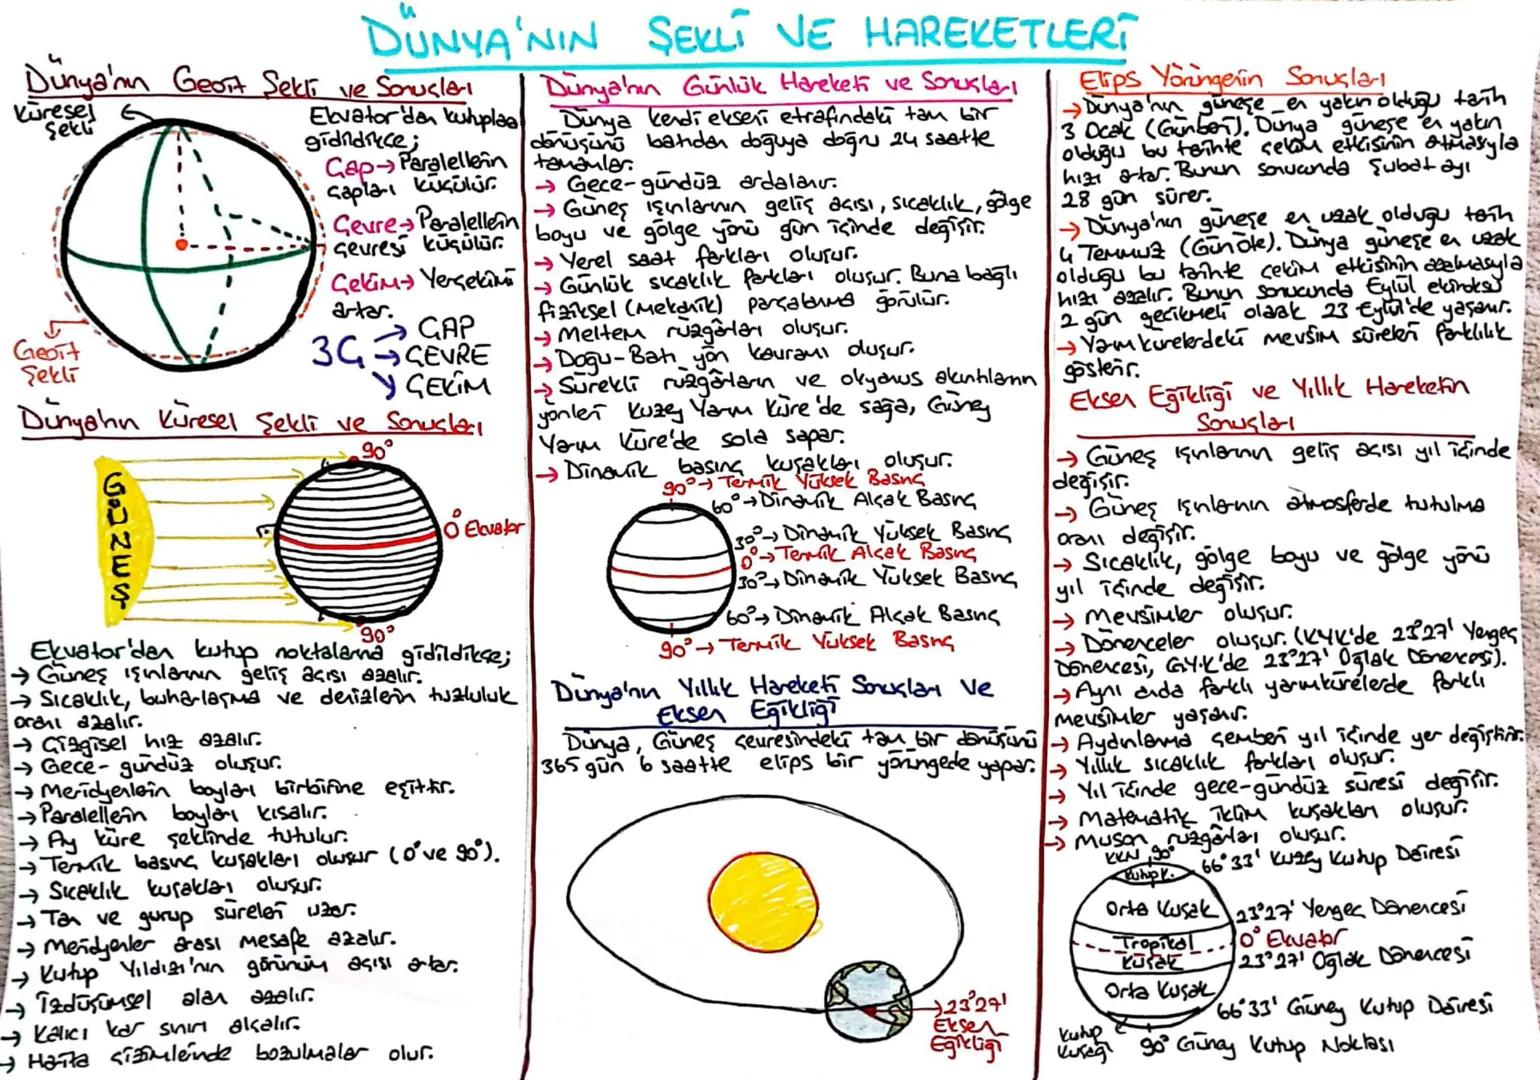 DÜNYA'NIN ŞEKLİ VE HAREKETLERİ
Dünya'nın Geoit Şekli ve Sonuçları
Küresel
Şekli
Ekvator'dan kutuplara
gidildikçe;
Çap→ Paralellerin
çapları küçülür.
Çevre→ Paralellerin
çevresi küçülür.
Çekim→ Yerçekimi
artar.
3Ç → ÇAP
→ ÇEVRE
→ ÇEKİM
Geoit
Şekli
Dünya'nın Küresel Şekli ve Sonuçları
GÜNEŞ
90°
0° Ekvator
90°
Ekvator'dan kutup noktalarına gidildikçe;
→ Güneş ışınlarının geliş açısı azalır.
→ Sıcaklık, buharlaşma ve denizlerin tuzluluk
oranı azalır.
→ Çizgisel hız azalır.
→ Gece-gündüz oluşur.
→ Meridyenlerin boyları birbirine eşittir.
→ Paralellerin boyları kısalır.
→ Ay küre şeklinde tutulur.
→ Termik basınç kuşakları oluşur (0° ve 90°).
→ Sıcaklık kuşakları oluşur.
→ Tan ve gurup süreleri uzar.
→ Meridyenler arası mesafe azalır.
→ Kutup Yıldızı'nın görünüm açısı artar.
→ İzdüşümsel alan azalır.
→ Kalıcı kar sınırı alçalır.
→ Harita çizimlerinde bozulmalar olur.
Dünya'nın Günlük Hareketi ve Sonuçları
Dünya kendi ekseni etrafındaki tam bir
dönüşünü batıdan doğuya doğru 24 saatte
tamamlar.
→ Gece-gündüz ardalanır.
→ Güneş ışınlarının geliş açısı, sıcaklık, gölge
boyu ve gölge yönü gün içinde değişir.
→ Yerel saat farkları oluşur.
→ Günlük sıcaklık farkları oluşur. Buna bağlı
fiziksel (Mekanik) parçalanma görülür.
→ Meltem rüzgârları oluşur.
→ Doğu-Batı yön kavramı oluşur.
→ Sürekli rüzgârların ve okyanus akıntıların
yönleri Kuzey Yarım Küre'de sağa, Güney
Yarım Küre'de sola sapar.
→ Dinamik basınç kuşakları oluşur.
90°→ Termik Yüksek Basınç
60°→ Dinamik Alçak Basınç
30°→ Dinamik Yüksek Basınç
0°→ Termik Alçak Basınç
30°→ Dinamik Yüksek Basınç
60°→ Dinamik Alçak Basınç
90°→ Termik Yüksek Basınç
Dünya'nın Yıllık Hareketi Sonuçları ve
Eksen Eğikliği
Dünya, Güneş çevresindeki tam bir dönüşünü
365 gün 6 saatte elips bir yörüngede yapar.
→ 23°27'
Eksen
Eğikliği
Elips Yörüngenin Sonuçları
→ Dünya'nın güneşe en yakın olduğu tarih
3 Ocak (Günberi). Dünya güneşe en yakın
olduğu bu tarihte çekim etkisinin artmasıyla
hızı artar. Bunun sonucunda Şubat ayı
28 gün sürer.
→ Dünya'nın güneşe en uzak olduğu tarih
4 Temmuz (Günöte). Dünya güneşe en uzak
olduğu bu tarihte çekim etkisinin azalmasıyla
hızı azalır. Bunun sonucunda Eylül ekinoksu
2 gün gecikmeli olarak 23 Eylül'de yaşanır.
→ Yarım kürelerdeki mevsim süreleri farklılık
gösterir.
Eksen Eğikliği ve Yıllık Hareketin
Sonuçları
→ Güneş ışınlarının geliş açısı yıl içinde
değişir.
→ Güneş ışınlarının atmosferde tutulma
oranı değişir.
→ Sıcaklık, gölge boyu ve gölge yönü
yıl içinde değişir.
→ Mevsimler oluşur.
→ Dönenceler oluşur. (KYK'de 23°27' Yengeç
Dönencesi, G.Y.K'de 23°27' Oğlak Dönencesi).
→ Aynı anda farklı yarımkürelerde farklı
mevsimler yaşanır.
→ Aydınlanma çemberi yıl içinde yer değiştirir.
→ Yıllık sıcaklık farkları oluşur.
→ Yıl içinde gece-gündüz süresi değişir.
→ Matematik iklim kuşakları oluşur.
→ Muson rüzgârları oluşur.
KKN 90°
66°33' Kuzey Kutup Dairesi
Kutup K.
Orta Kuşak
23°27' Yengeç Dönencesi
Tropikal
Kuşak
0° Ekvator
23°27' Oğlak Dönencesi
Orta Kuşak
66°33' Güney Kutup Dairesi
Kutup
Kuşağı
90° Güney Kutup Noktası